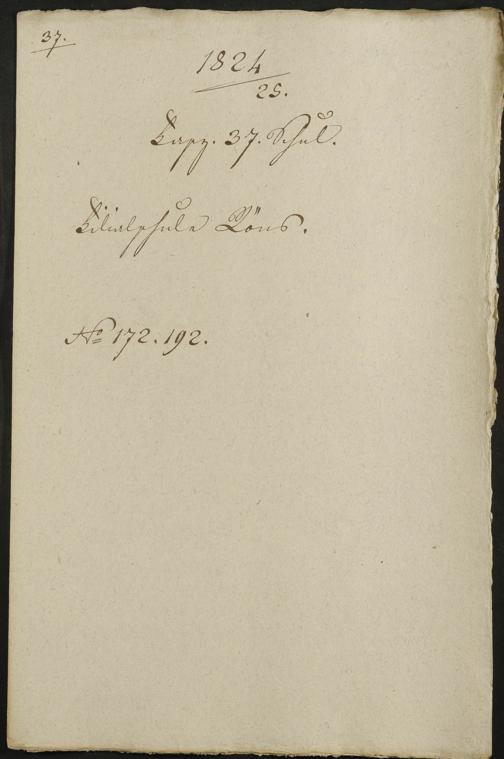 37.
1824
25.
Kapz. 37. Schul.
Filialschule Röns.
No 172. 192.